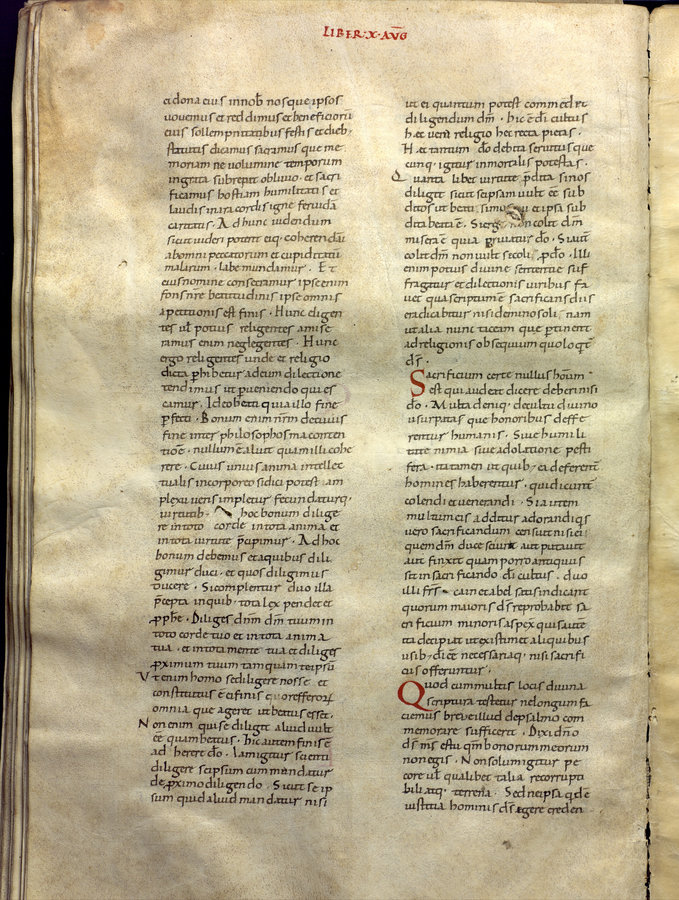 LIBER·X·AUG̅
et dona eius in nob̅ nosque ipsos
vovemus et reddimus et beneficioru̅
eius sollempnitatibus festis et dieb;
statutis dicamus sacramus que me
moriam ne volumine temporum
ingrata subrepat oblivio · et sacri
ficamus hostiam humilitatis et
laudis in ara cordis igne fervida̅
caritatis · Ad hunc videndum
sicut videri poterit eiq; coherendu̅
ab omni peccatorum et cupiditatu̅
malarum · labe mundamur · Et
eius nomine consecramur ipse enim
fons nr̅e beatitudinis ipse omnis
apetitionis est finis · Hunc eligen
tes ul̅ potius religentes amise
ramus enim neglegentes · Hunc
ergo religentes unde et religio
dicta p̅hibetur ad eum dilectione
tendimus ut p̅veniendo quies
camus · Ideo beati quia illo fine
p̅fecti · Bonum enim nr̅m de cuius
fine inter philosophos ma conten
tio e̅ · nullum e̅ aliut quam illi cohe
rere · Cuius unius anima intellec
tualis incorporeo si dici potest am
plexu veris impletur fecundaturq;
virtutib; hoc bonum dilige
re in toto corde in tota anima et
in tota virtute p̅cipimur · Ad hoc
bonum debemus et a quibus dili
gimur duci · et quos diligimus
ducere · Sic complentur duo illa
p̅cepta in quib; tota lex pendet et
p̅phe̅ · Diliges dn̅m dm̅ tuum in
toto corde tuo et in tota anima
tua · et in tota mente tua et diliges
p̅ximum tuum tamquam te ipsu̅
Ut enim homo se diligere nosse et
constitutus e̅ ei finis quo refferor̅
omnia que ageret ut beatus esset ·
Non enim qui se diligit aliud vult
ee̅ quam beatus · Hic autem finis e̅
adherere do̅ · Iam igitur scienti
diligere se ipsum cum mandatur
de p̅ximo diligendo · Sicut se ip
sum quid aliud mandatur nisi
ut ei quantum potest commendet
diligendum dm̅ · hic e̅ di̅ cultus
hec vera religio hec recta pietas ·
Hec tantum do̅ debita servitus que
cunq; igitur inmortalis potestas ·
Quanta libet virtute p̅dita si nos
diligit sicut se ipsam vult ee̅ sub
ditos ut beati simus cui et ipsa sub
dita beata e̅ · Si ergo non colit dm̅
misera e̅ quia privatur do̅ · Si aut̅
colit dm̅ non vult se coli p̅ do̅ · Illi
enim potius divine sententie suf
fragatur et dilectionis viribus fa
vet qua scriptum e̅ sacrificans diis
eradicabitur nisi domino soli · nam
ut alia nunc taceam que p̅tinent
ad religionis obsequium quo lo q̅t
ds̅ ·
Sacrificium certe nullus hom̅um
est qui audeat dicere deberi nisi
do̅ · Multa deniq; de cultu divino
usurpata que honoribus deffe
rentur humanis · Sive humili
tate nimia sive adolatione pesti
fera · ita tamen ut quib; ea deferent̅
homines haberentur · qui dicunt̅
colendi et venerandi · Si autem
multum eis additur adorandi q̅s
vero sacrificandum censuit nisi ei
quem dm̅ aut scivit aut putavit
aut finxit quam porro antiquus
sit in sacrificando di̅ cultus · duo
illi fr̅s · cain et abel satis indicant
quorum maioris ds̅ reprobabit sa
crificium minoris aspexit qui savte
ta decipiat ut existimet aliquibus
usib; di̅ ee̅ necessaria q; nisi sacrifi
ciis offeruntur ·
Quod cum multis locis divina
scriptura testetur ne longum fa
ciemus breve illud de psalmo com
memorare sufficerit · Dixi dn̅o
ds̅ ms̅ es tu qm̅ bonorum meorum
non egis · Non solum igitur pe
core ul̅ qualibet talia re corrupti
bili atq; terrena · Sed ne ipsa q̅de̅
iustitia hominis ds̅ egere creden